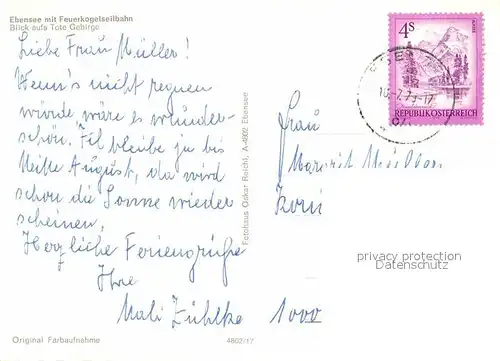 Ebensee mit Feuerkogelseilbahn
Blick aufs Tote Gebirge
Liebe Frau Müller!
Wenn's nicht regnen
würde, wäre es wunder-
schön. Ich bleibe ja bis
Mitte August, da wird
schon die Sonne wieder
scheinen.
Herzliche Feriengrüße
Ihre
Mali Zühlke
Original Farbaufnahme
4802/17
Fotohaus Oskar Reichl, A-4802 Ebensee
4S
REPUBLIK ÖSTERREICH
Frau
Margrit Müller
1000
privacy protection
Datenschutz